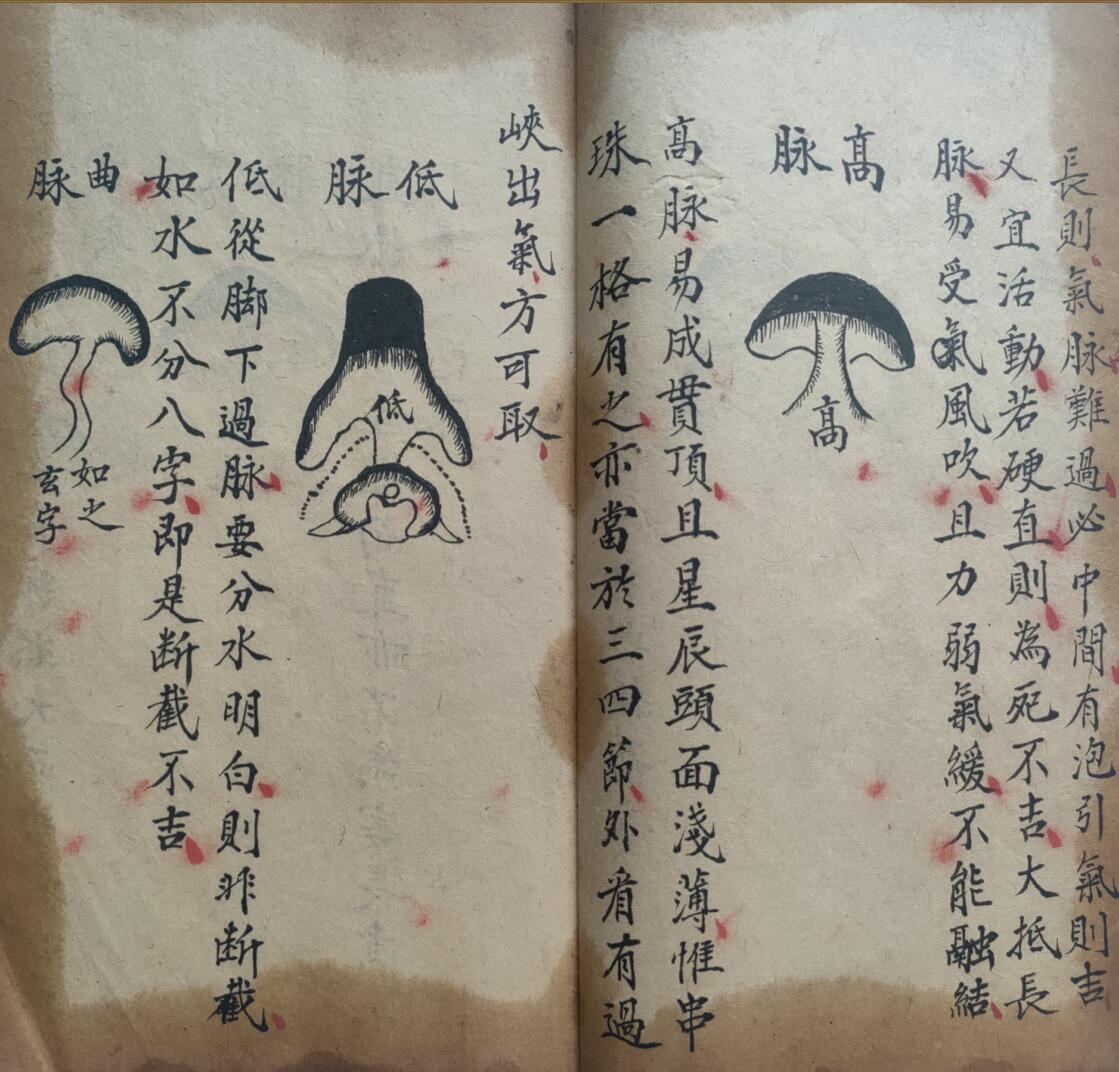 長則氣脉難過必中間有泡引氣則吉
又宜活動若硬直則為死不吉大抵長
脉易受氣風吹且力弱氣緩不能融結
高脉
高
高脉易成貫頂且星辰頭面淺薄惟串
珠一格有之亦當於三四節外看有過
峽出氣方可取
低脉
低
低從脚下過脉要分水明白則非断截
如水不分八字即是断截不吉
曲脉
如之
玄字